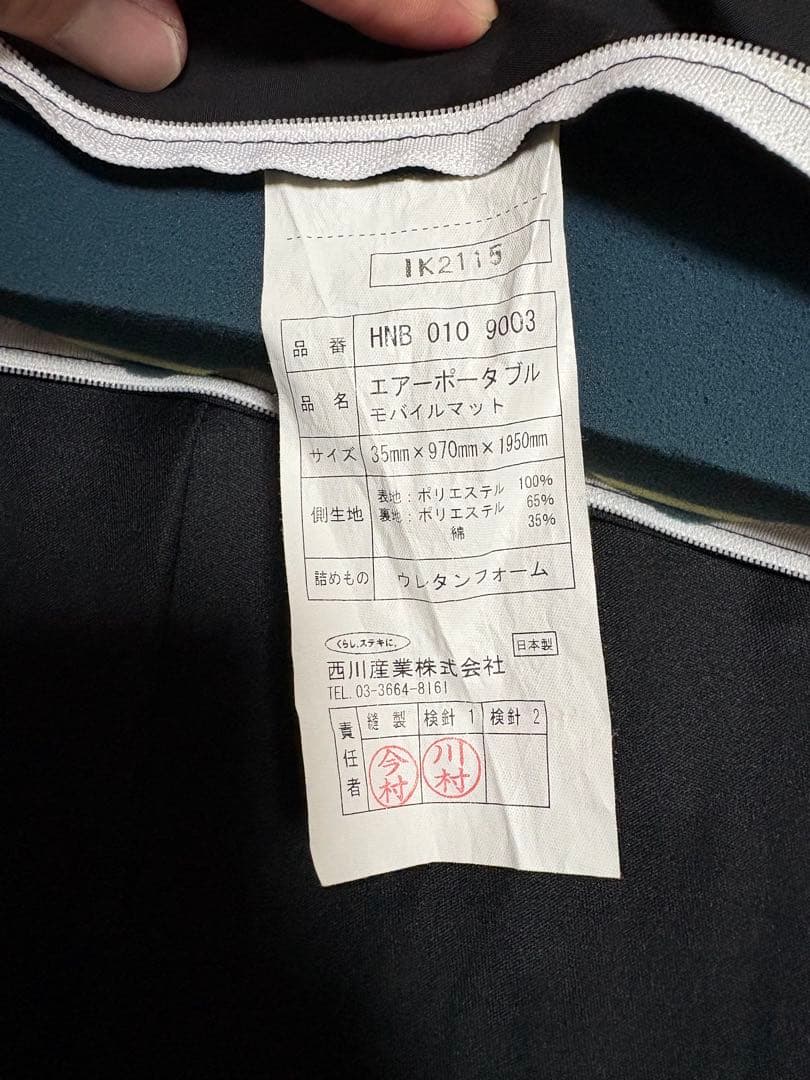 IK2115
品番 HNB 010 9003
品名 エアーポータブル
モバイルマット
サイズ 35mm×970mm×1950mm
側生地 表地:ポリエステル 100%
裏地:ポリエステル 65%
綿 35%
詰めもの ウレタンフォーム
くらし、ステキに。
日本製
西川産業株式会社
TEL. 03-3664-8161
責任者 縫製 検針1 検針2
今村 川村